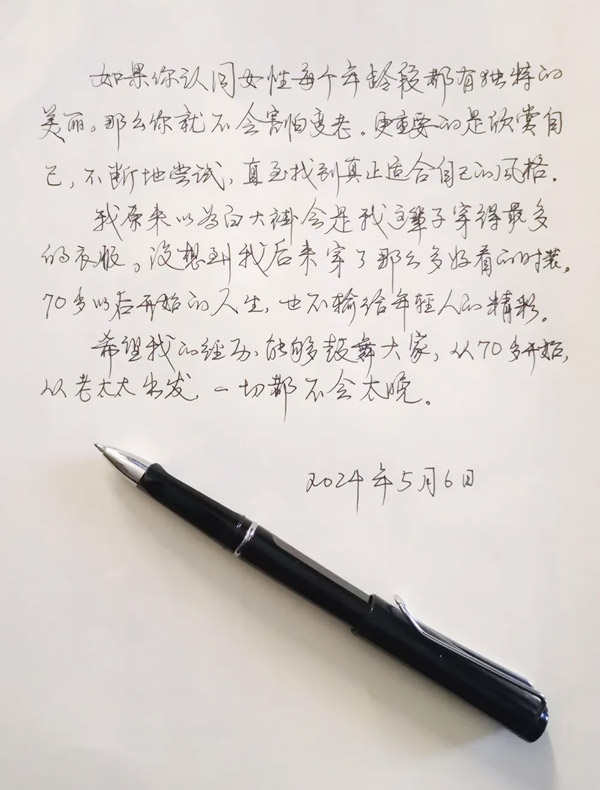 如果你认同女性每个年龄段都有独特的
美丽。那么你就不会害怕变老。更重要的是欣赏自
己，不断地尝试，直至找到真正适合自己的风格。
我原来以为白大褂会是我这辈子穿得最多
的衣服。没想到我后来穿了那么多好看的时装。
70多岁后开始的人生，也不输给年轻人的精彩。
希望我的经历，能够鼓舞大家，从70多开始，
从老太太出发，一切都不会太晚。
2024年5月6日